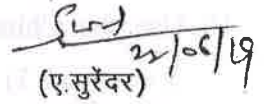 22/06/19
(ए.सुरेंदर)